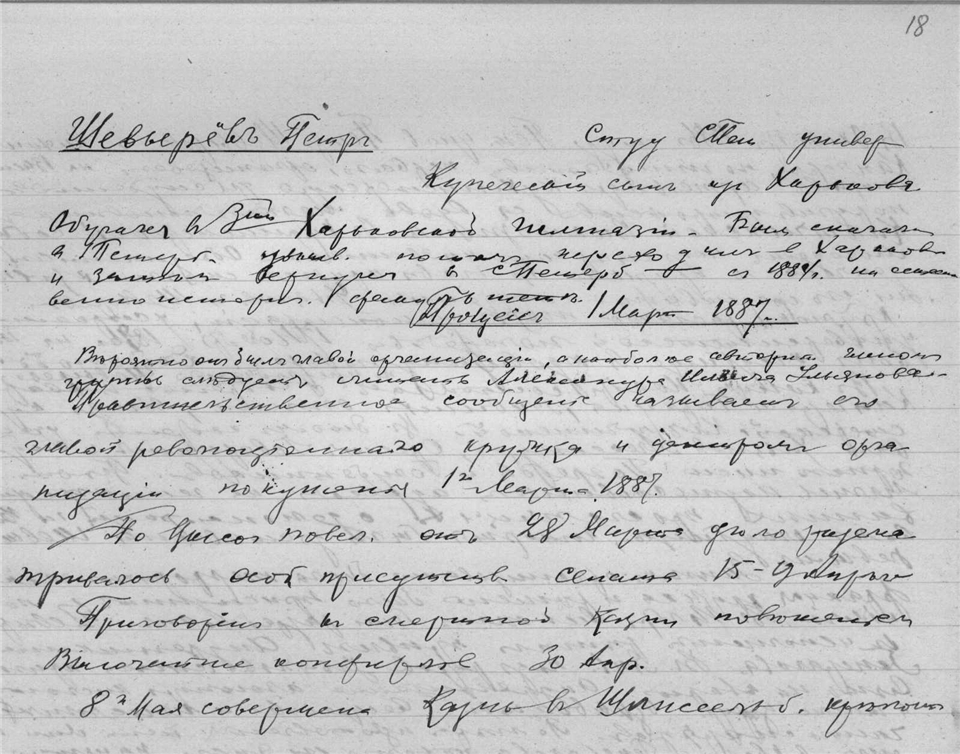 18
Шевырёвъ Петръ Студ Пет универ
Купеческий сынъ из Харькова
Обучался въ 3ей Харьковской гимназіи. Был сначала
в Петерб. унив. потом переходил в Харьков
и затем вернулся в Петерб с 1884г. на естест
венно историч.
Процессъ 1 Март 1887 г.
Вероятно онъ былъ главой организаціи, а наиболее автори членом
группы следует считать Александра Ильича Ульянова
Правительственное сообщение называет его
главой революціоннаго кружка и центромъ орга
низаціи покушенія 1го Марта 1887.
По Высоч повел. отъ 28 Марта дело разсма
тривалось особ присутств сената 15-19 Апреля
Приговоренъ къ смертной казни повешеніем
Высочайше конфирмов 30 Апр.
8го Мая совершена казнь въ Шлиссельб. крепости